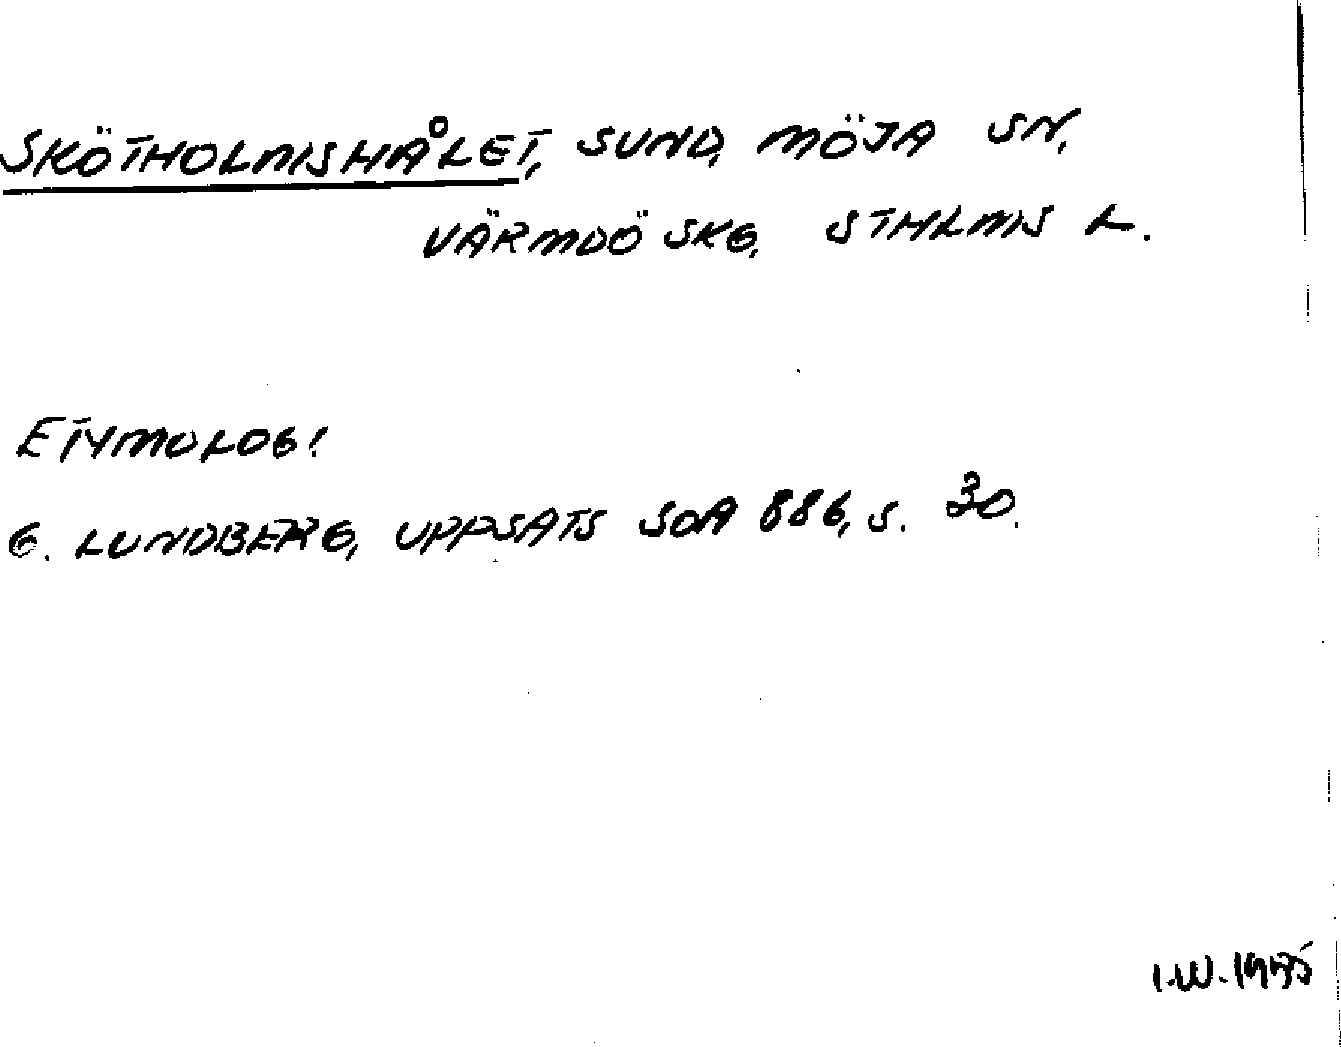 SKÖTHOLMSHÅLET, SUND, MÖJA SN,
VÄRMDÖ SKG, STHLMS L.
ETYMOLOGI
G. LUNDBERG, UPPSATS SOA 886, S. 30.
I.W. 1975